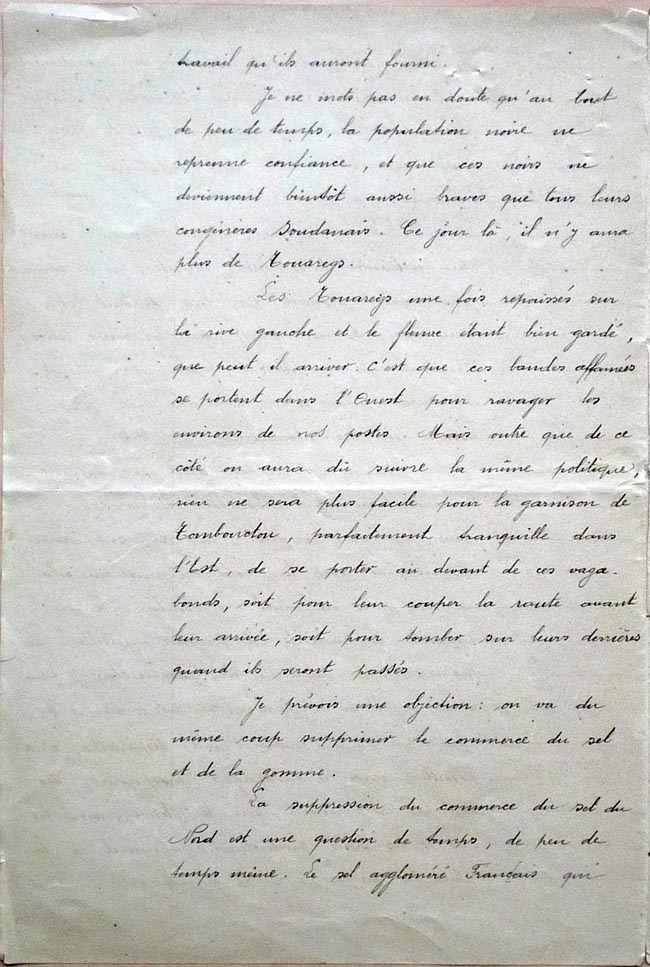 travail qu'ils auront fourni.
Je ne mets pas en doute qu'au bout
de peu de temps, la population noire ne
reprenne confiance, et que ces noirs ne
deviennent bientôt aussi braves que tous leurs
congénères Soudanais. Ce jour là, il n'y aura
plus de Touaregs.
Les Touaregs une fois repoussés sur
la rive gauche et le fleuve étant bien gardé,
que peut il arriver. C'est que ces bandes affamées
se portent dans l'Ouest pour ravager les
environs de nos postes. Mais outre que de ce
côté on aura dû suivre la même politique,
rien ne sera plus facile pour la garnison de
Tombouctou, parfaitement tranquille dans
l'Est, de se porter au devant de ces vaga-
bonds, soit pour leur couper la route avant
leur arrivée, soit pour tomber sur leurs derrières
quand ils seront passés.
Je prévois une objection: on va du
même coup supprimer le commerce du sel
et de la gomme.
La suppression du commerce du sel du
Nord est une question de temps, de peu de
temps même. Le sel aggloméré Français qui